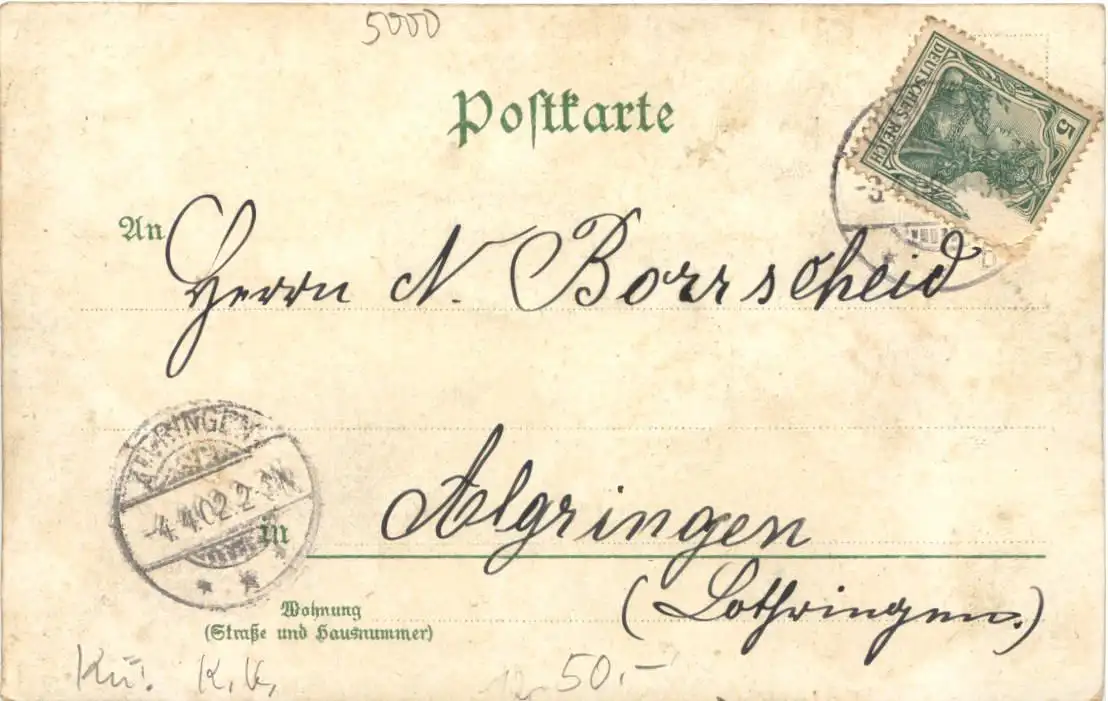 5000
Postkarte
5
DEUTSCHES REICH
An
Herrn N. Borrscheid
ALGRINGEN
-4.4.02.2-3N
in
Algringen
(Lothringen.)
Wohnung
(Straße und Hausnummer)
Kü. K.K.
50.-